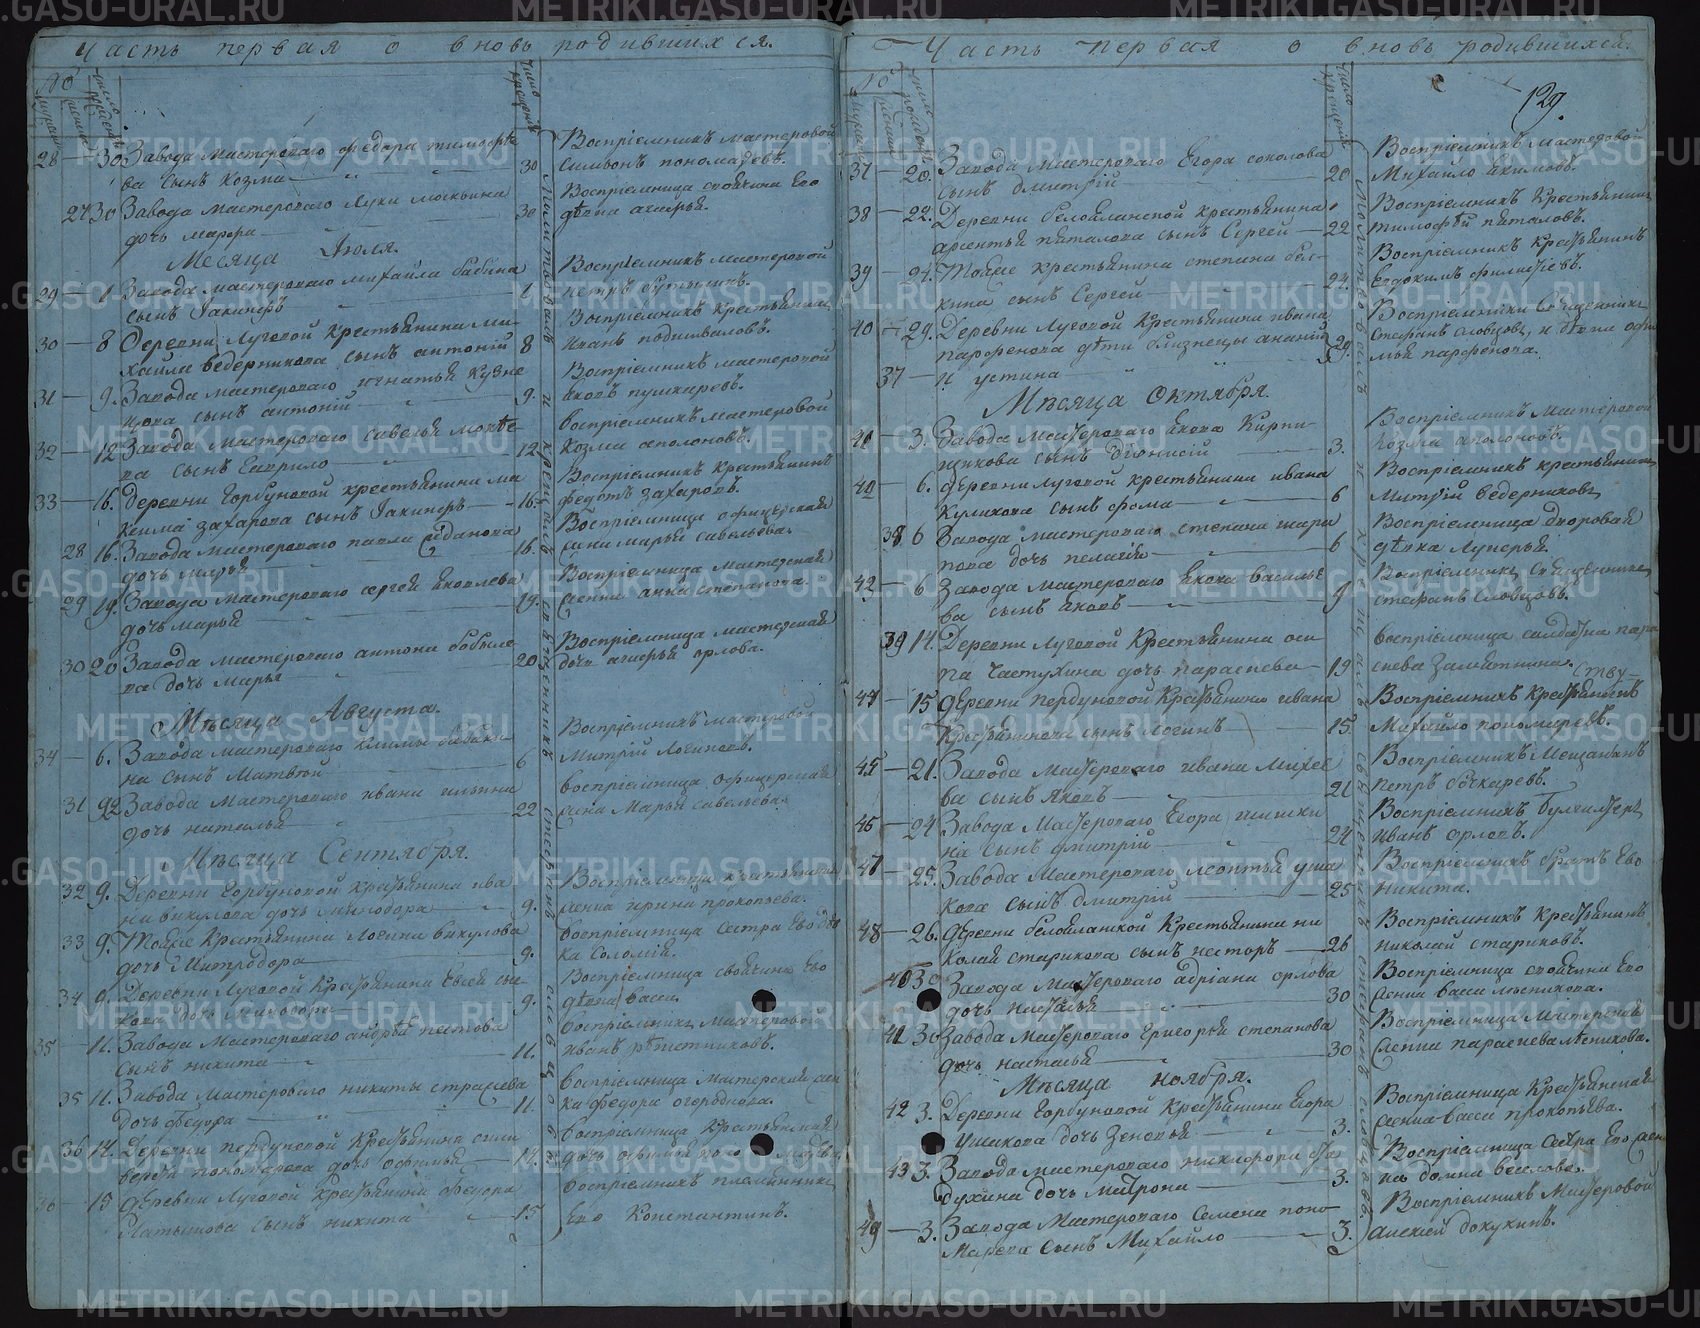 Часть первая о вновь родившихся.
28 — 30 Завода Мастероваго федора тимофѣе
ва сынъ козма — 30
Восприемникъ мастеровой
Симеонъ пономаревъ.
27 30 Завода мастероваго Луки
дочь марфа — 30
Восприемница Его
дѣвка
Месяца Іюля.
29 — 1 Завода мастероваго михайла бабина
сынъ Іакинфъ 1
Восприемникъ мастеровой
петръ
30 — 8 Деревни Луговой крестьянина ми-
хайла ведерникова сынъ антоній 8
Восприемникъ крестьянинъ
Иванъ подшиваловъ.
31 — 9. Завода мастероваго игнатья кузне
цова сынъ антоній 9.
Восприемникъ мастеровой
яковъ пушкаревъ.
32 — 12 Завода мастероваго савелья мокѣе
ва сынъ Гаврило 12
восприемникъ мастеровой
козма аполоновъ.
33 — 16. деревни Горбуновой крестьянина ма
ксима захарова сынъ Іакинфъ — 16.
Восприемникъ крестьянинъ
федотъ захаровъ.
28 16. Завода мастероваго павла
дочь марья 16.
Восприемница офицерская
жена марья савельева.
29 19. Завода мастероваго сергея яковлева
дочь марья 19.
Восприемница мастерская
женка анна степанова.
30 20 Завода мастероваго антона бобыле
ва дочь марья 20
Восприемница мастерская
дочь орлова.
Мѣсяца Августа.
34 — 6. Завода мастероваго
на сынъ Матвей 6
Восприемникъ мастеровой
Митрій Логиновъ.
31 22 Завода мастероваго ивана ильина
дочь наталья 22
восприемница офицерская
жена Марья савельева.
Мѣсяца Сентября.
32 9. Деревни Горбуновой крестьянина ива
на викулова дочь минодора 9.
Восприемница крестьянская
женка ирина прокопьева.
33 9. Тояже Крестьянина Логина викулова
дочь Митродора 9.
восприемница сестра Его дѣв
ка Соломія.
34 9. Деревни Луговой Крестьянина
дочь минодора 9.
Восприемница свойчина Его
дѣвка васса.
35 — 11. Завода Мастероваго андрѣя пестова
сынъ никита 11.
восприемникъ Мастеровой
иванъ рѣшетниковъ.
35 11. Завода Мастероваго никиты
дочь федора 11.
восприемница Мастерская жен
ка федора огороднова.
36 14. Деревни Горбуновой крестьянина
пономарева дочь офимья 14.
восприемница крестьянская
дочь офимья
36 — 15 деревни Луговой крестьянина федора
Латышова сынъ никита 15
восприемникъ племянникъ
Его Константинъ.
Молитвовалъ и крещалъ священникъ стефанъ словцовъ
Часть первая о вновь родившихся.
129.
37 — 20. Завода мастероваго Егора соколова
сынъ дмитрій 20
Восприемникъ мастеровой
Михайло якимовъ.
38 — 22. Деревни белоеланской крестьянина
арсентья паталова сынъ Сергей — 22
Восприемникъ Крестьянинъ
тимофѣй паталовъ.
39 — 24. Тояже крестьянина степана бел-
кина сынъ Сергей 24.
Восприемникъ Крестьянинъ
Евдокимъ
40 — 29. Деревни Луговой Крестьянина ивана
парфенова дѣти близнецы ананій 29.
37 — и устина
Восприемники Священникъ
Стефанъ словцовъ, и дѣвка офи
мья парфенова.
Мѣсяца Октября.
41 — 3. Завода Мастероваго якова Кирпи-
щикова сынъ діонисій 3.
Восприемникъ Мастеровой
козма аполоновъ.
40 — 6. деревни луговой крестьянина ивана
куликова сынъ фома 6
Восприемникъ крестьянинъ
митрій ведерниковъ
38 6 Завода мастероваго степана шара
пова дочь пелагея 6
Восприемница дворовая
дѣвка Лукерья.
42 — 6 Завода мастероваго якова василье
ва сынъ яковъ 9
Восприемникъ Священникъ
стефанъ Словцовъ.
39 14. Деревни Луговой Крестьянина оси
па Частухина дочь парасковья 19
восприемница салдатка пара
скева
44 — 15 деревни Горбуновой Крестьянина ивана
Крестьянинова сынъ логинъ 15.
Восприемникъ Крестьянинъ
Михайло пономаревъ.
45 — 21. Завода Мастероваго ивана михее
ва сынъ Яковъ 21
Восприемникъ Мещанинъ
петръ бочкаревъ.
46 — 24 Завода Мастероваго Егора шишки
на сынъ дмитрій 24
Восприемникъ
иванъ орловъ.
47 — 25. Завода Мастероваго леонтья уша
кова сынъ дмитрій 25
Восприемникъ братъ Его
никита.
48 — 26. деревни белоеланской Крестьянина ни
колая старикова сынъ несторъ 26
Восприемникъ Крестьянинъ
николай стариковъ.
40 30 Завода Мастероваго адріана орлова
дочь настасья 30
Восприемница свойчина Его
женка васса мясникова.
41 30 Завода Мастероваго Григорья степанова
дочь настасья 30
Восприемница Мастерская
женка параскева мясникова.
Мѣсяца ноября.
42 3. Деревни Горбуновой Крестьянина Егора
Ушакова дочь Зеновья 3.
Восприемница Крестьянская
женка васса прокопьева.
43 3. Завода мастероваго никифора
духина дочь матрона 3.
Восприемница сестра Его жен
ка домна веселова.
49 — 3. Завода Мастероваго Семена поно-
марева сынъ Михайло 3.
Восприемникъ Мастеровой
алексей докукинъ.
Молитвовалъ и крещалъ священникъ стефанъ словцовъ.
METRIKI.GASO-URAL.RU